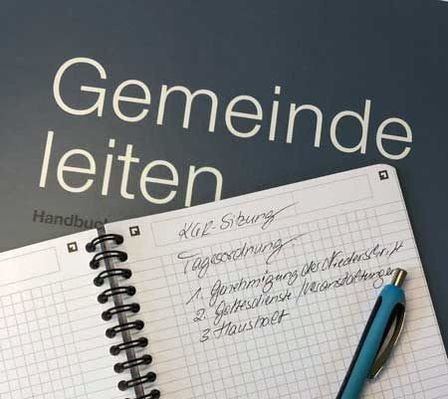 Gemeinde
leiten
Handbuch
KGR-Sitzung
Tagesordnung
1. Genehmigung der Niederschrift
2. Gottesdienste / Veranstaltungen
3. Haushalt